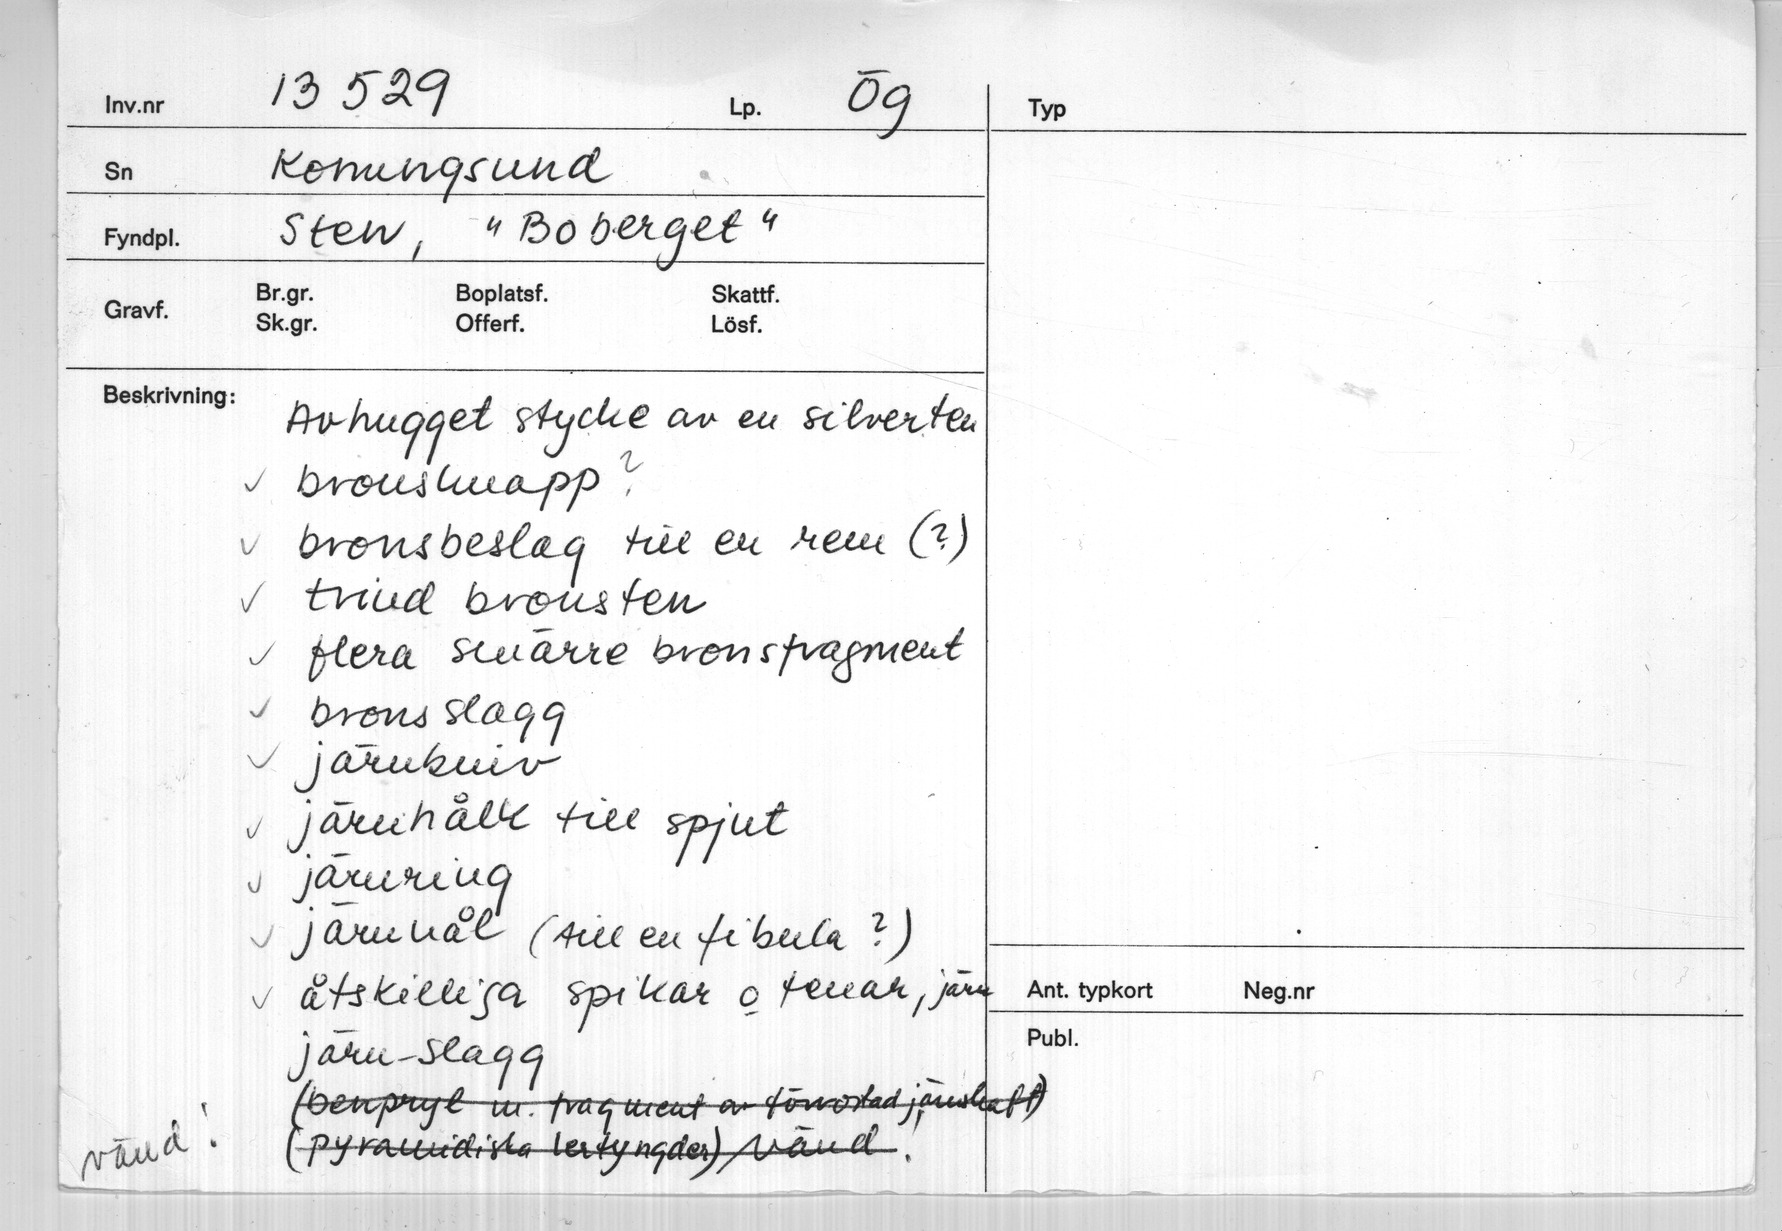 Inv.nr 13 529 Lp. Ög Typ
Sn Konungsund
Fyndpl. Sten, "Boberget"
Br.gr. Boplatsf. Skattf.
Gravf.
Sk.gr. Offerf. Lösf.
Beskrivning:
Avhugget stycke av en silverten
✓ bronsknapp?
✓ bronsbeslag till en rem (?)
✓ trind bronsten
✓ flera smärre bronsfragment
✓ brons slagg
✓ järnkniv
✓ järnhålk till spjut
✓ järnring
✓ järnnål (till en fibula?)
✓ åtskilliga spikar o tenar, järn
Ant. typkort Neg.nr
Publ.
järn-slagg
(benpryl m. fragment av förrostad järnskaft)
(pyramidiska lertyngder) vänd!
vänd!